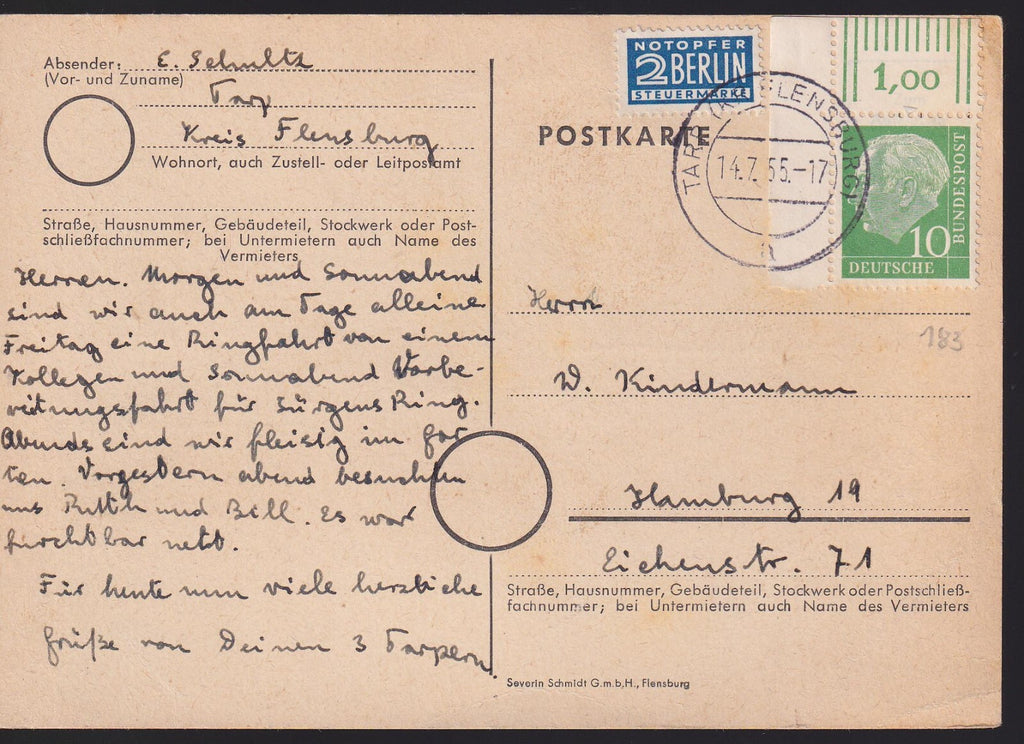 Absender: E. Schultz
(Vor- und Zuname)
Tarp
Kreis Flensburg
Wohnort, auch Zustell- oder Leitpostamt
Straße, Hausnummer, Gebäudeteil, Stockwerk oder Post-
schließfachnummer; bei Untermietern auch Name des
Vermieters
Herren. Morgen und Sonnabend
sind wir auch am Tage alleine
Freitag eine Ringfahrt von einem
Kollegen und Sonnabend Vorbe-
reitungsfahrt für Jürgens Ring.
Abends sind wir fleißig im Gar
ten. Vorgestern abend besuchten
uns Ruth und Bill. Es war
furchtbar nett.
Für heute nun viele herzliche
Grüße von Deinen 3 Tarpern.
NOTOPFER
2 BERLIN
STEUERMARKE
1,00
POSTKARTE
TARP (KR. FLENSBURG)
14.7.55.-17
a
10
DEUTSCHE
BUNDESPOST
183
Herrn
W. Kindermann
Hamburg 19
Eichenstr. 71
Straße, Hausnummer, Gebäudeteil, Stockwerk oder Postschließ-
fachnummer; bei Untermietern auch Name des Vermieters
Severin Schmidt G.m.b.H., Flensburg